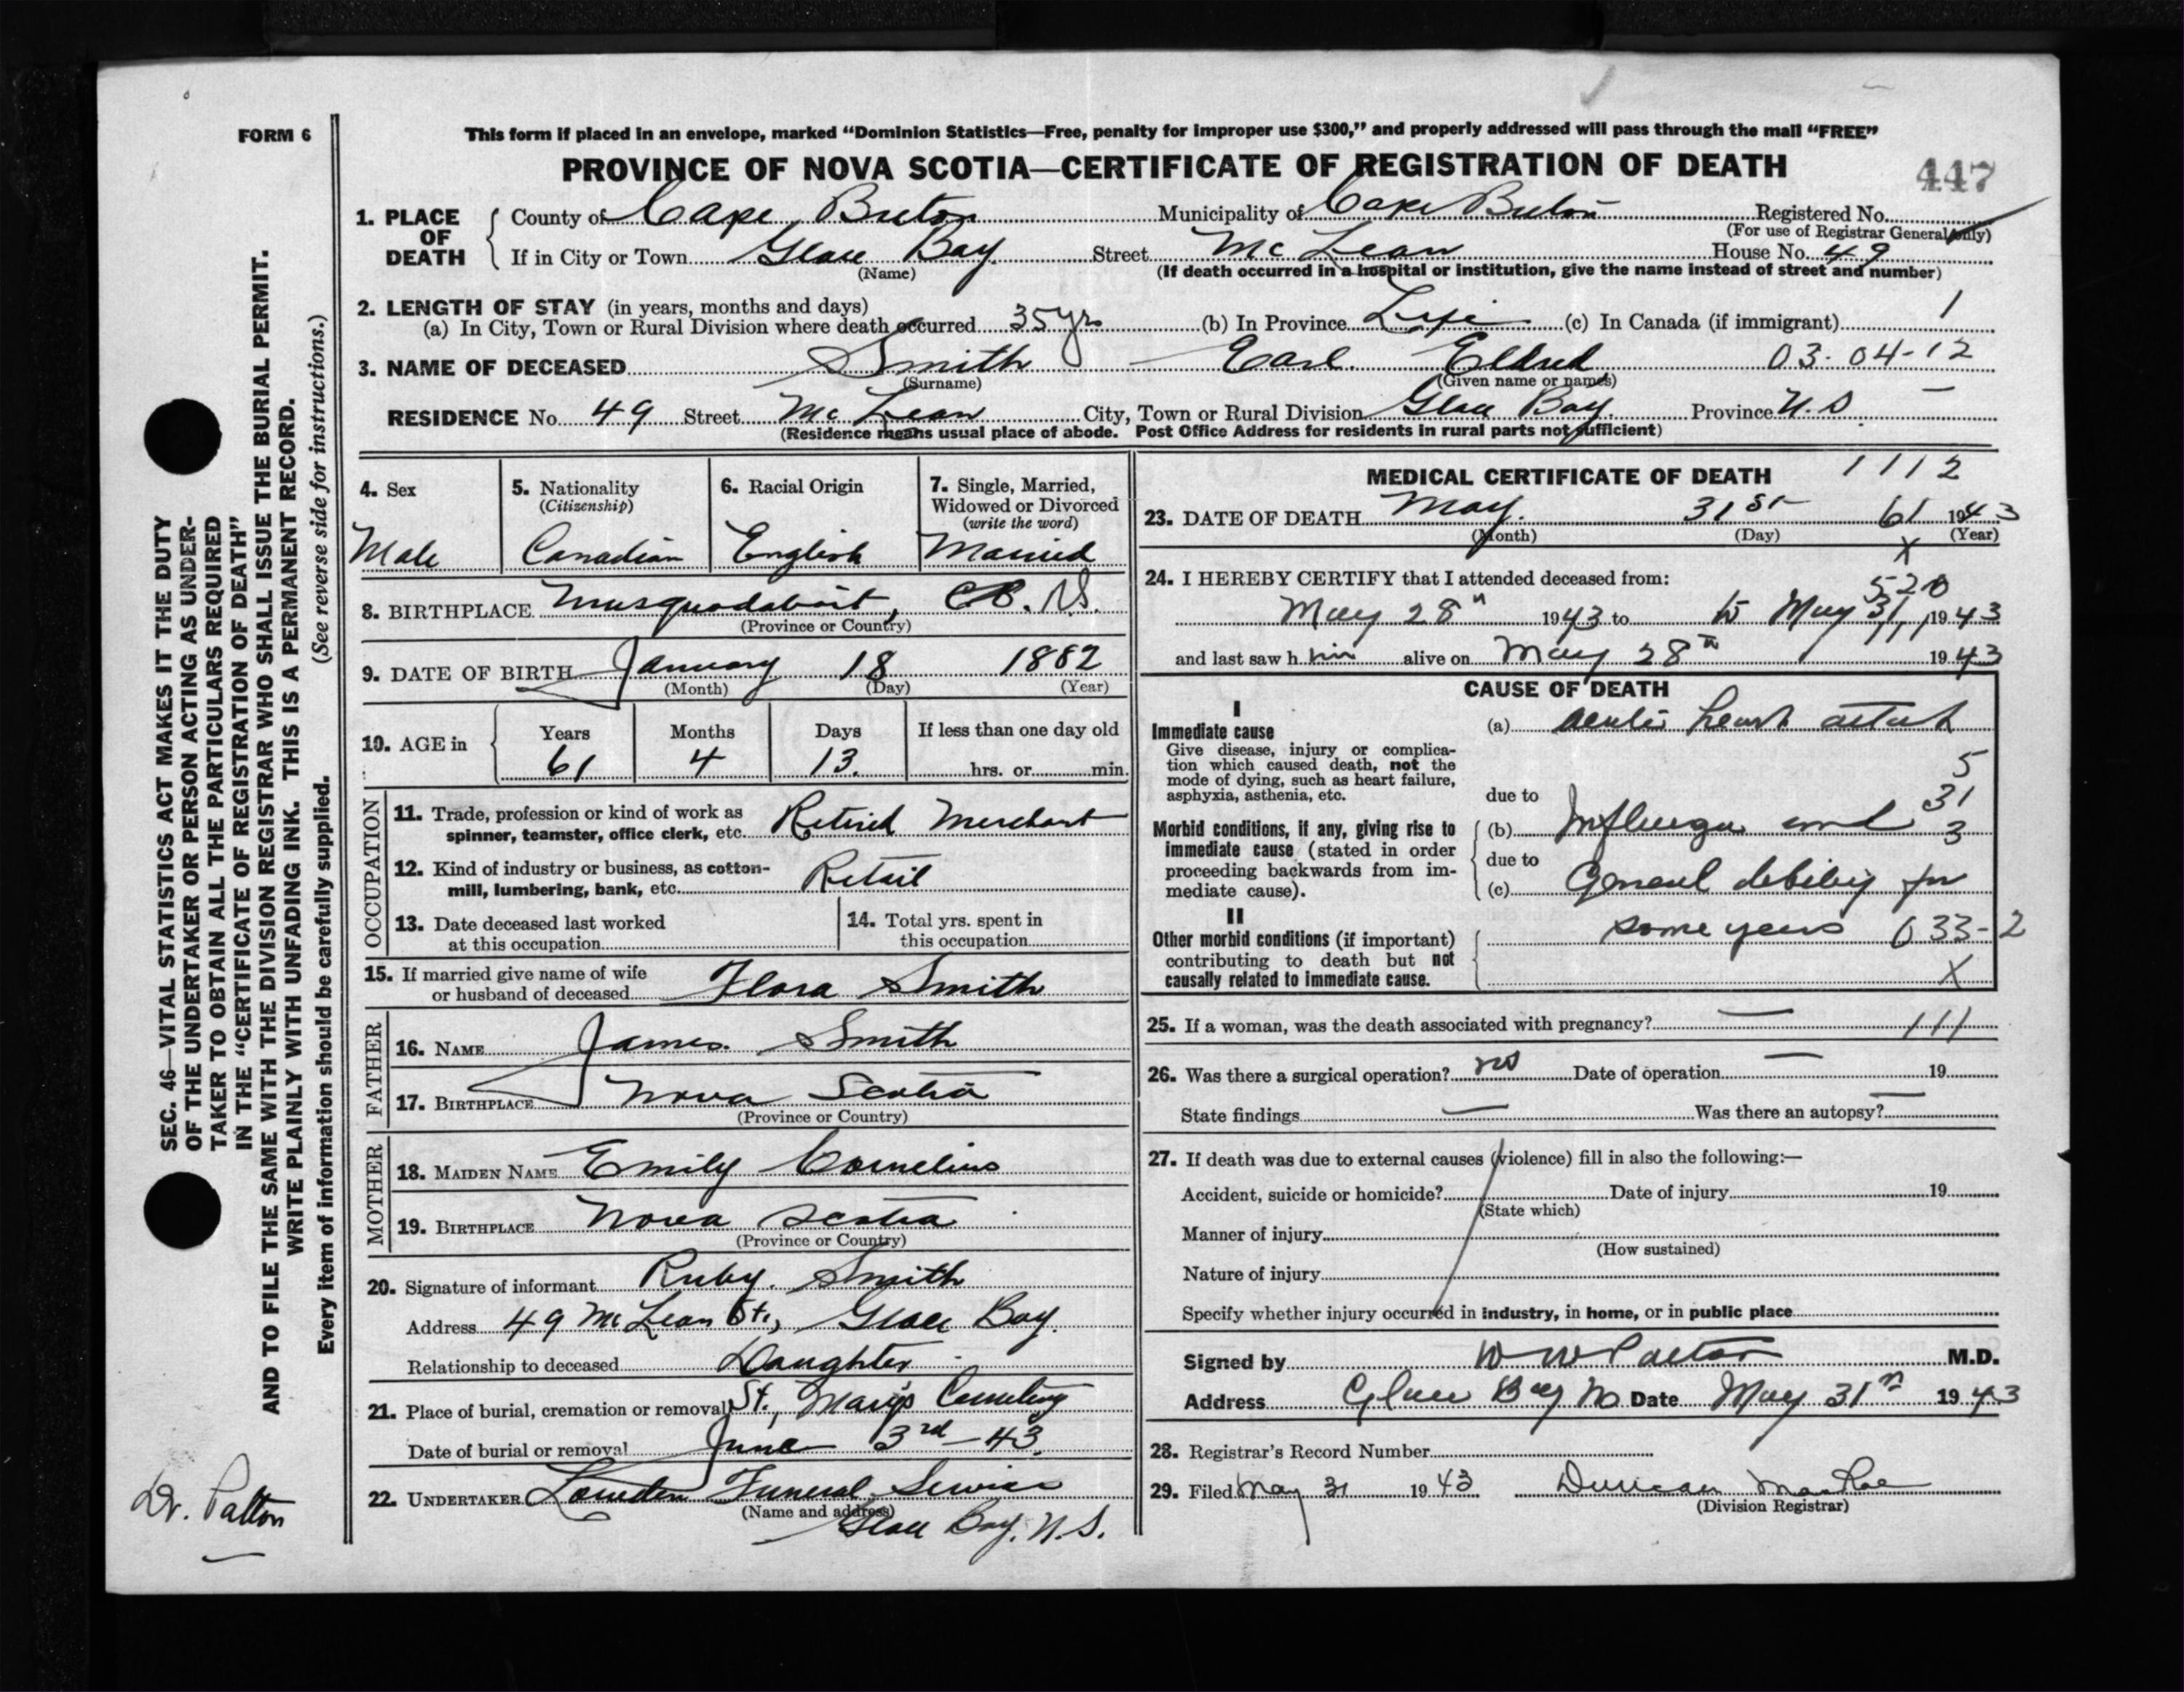 FORM 6
This form if placed in an envelope, marked “Dominion Statistics—Free, penalty for improper use $300,” and properly addressed will pass through the mail “FREE”
PROVINCE OF NOVA SCOTIA—CERTIFICATE OF REGISTRATION OF DEATH
447
1. PLACE OF DEATH
County of Cape Breton Municipality of Cape Breton Registered No.
(For use of Registrar General only)
If in City or Town Glace Bay Street McLean House No. 49
(Name) (If death occurred in a hospital or institution, give the name instead of street and number)
2. LENGTH OF STAY (in years, months and days)
(a) In City, Town or Rural Division where death occurred 35 yrs (b) In Province Life (c) In Canada (if immigrant) 1
3. NAME OF DECEASED Smith — Earl Eldred 03-04-12
(Surname) (Given name or names)
RESIDENCE No. 49 Street McLean City, Town or Rural Division Glace Bay. Province N.S —
(Residence means usual place of abode. Post Office Address for residents in rural parts not sufficient)
4. Sex
Male
5. Nationality
(Citizenship)
Canadian
6. Racial Origin
English
7. Single, Married,
Widowed or Divorced
(write the word)
Married
8. BIRTHPLACE Musquodoboit, CB. N.S.
(Province or Country)
9. DATE OF BIRTH January 18 1882
(Month) (Day) (Year)
10. AGE in
Years Months Days If less than one day old
61 4 13. hrs. or min.
OCCUPATION
11. Trade, profession or kind of work as
spinner, teamster, office clerk, etc. Retired Merchant
12. Kind of industry or business, as cotton-
mill, lumbering, bank, etc. Retail
13. Date deceased last worked
at this occupation
14. Total yrs. spent in
this occupation
15. If married give name of wife
or husband of deceased Flora Smith
FATHER
16. NAME James Smith
17. BIRTHPLACE Nova Scotia
(Province or Country)
MOTHER
18. MAIDEN NAME Emily Cornelius
19. BIRTHPLACE Nova Scotia
(Province or Country)
20. Signature of informant Ruby Smith
Address 49 McLean St., Glace Bay.
Relationship to deceased Daughter
21. Place of burial, cremation or removal St., Mary's Cemetery
Date of burial or removal June 3rd — 43.
22. UNDERTAKER Funeral Service
(Name and address)
Glace Bay, N.S.
MEDICAL CERTIFICATE OF DEATH 1112
23. DATE OF DEATH May. 31st 61 1943
(Month) (Day) (Year)
X
24. I HEREBY CERTIFY that I attended deceased from:
520
May 28th 1943 to to May 31, 1943
and last saw h im alive on May 28th 1943
CAUSE OF DEATH
I
Immediate cause
Give disease, injury or complica-
tion which caused death, not the
mode of dying, such as heart failure,
asphyxia, asthenia, etc.
(a) acute heart attack
5
due to 31
Morbid conditions, if any, giving rise to
immediate cause (stated in order
proceeding backwards from im-
mediate cause).
(b) Influenza and 3
due to
(c) General debility for
some years 033-2
II
Other morbid conditions (if important)
contributing to death but not
causally related to immediate cause.
X
25. If a woman, was the death associated with pregnancy? — 111
26. Was there a surgical operation? no Date of operation — 19
State findings — Was there an autopsy? —
27. If death was due to external causes (violence) fill in also the following:—
Accident, suicide or homicide? Date of injury 19
(State which)
Manner of injury
(How sustained)
Nature of injury
Specify whether injury occurred in industry, in home, or in public place
Signed by W W Patton M.D.
Address Glace Bay NS Date May 31st 1943
28. Registrar's Record Number
29. Filed May 31 1943 Duncan MacRae
(Division Registrar)
SEC. 46—VITAL STATISTICS ACT MAKES IT THE DUTY
OF THE UNDERTAKER OR PERSON ACTING AS UNDER-
TAKER TO OBTAIN ALL THE PARTICULARS REQUIRED
IN THE “CERTIFICATE OF REGISTRATION OF DEATH”
AND TO FILE THE SAME WITH THE DIVISION REGISTRAR WHO SHALL ISSUE THE BURIAL PERMIT.
WRITE PLAINLY WITH UNFADING INK. THIS IS A PERMANENT RECORD.
(See reverse side for instructions.)
Every item of information should be carefully supplied.
Dr. Patton